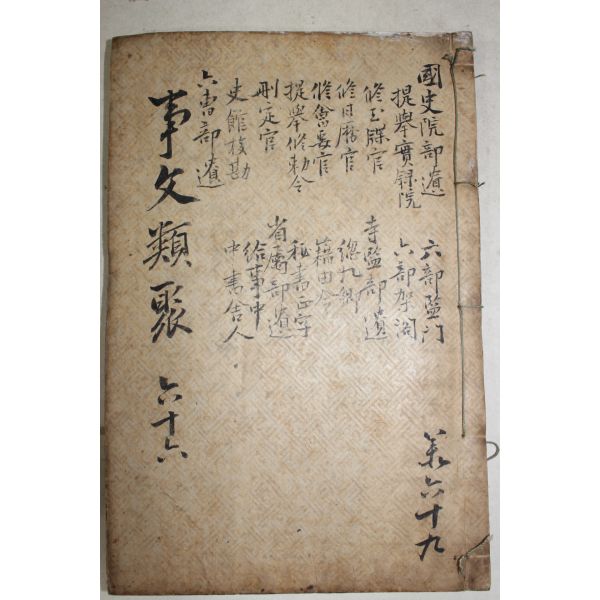 國史院部遺
提舉實録院
修玉牒官
修日曆官
修會要官
提舉修勅令
刑定官
史館校勘
六曹部遺
六部監門
六部架閣
寺監部遺
總九卿
籍田令
秘書正字
省屬部遺
給事中
中書舍人
事文類聚 六十六
共六十九